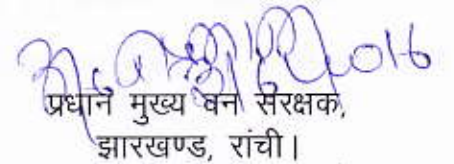 प्रधान मुख्य वन संरक्षक,
झारखण्ड, रांची।